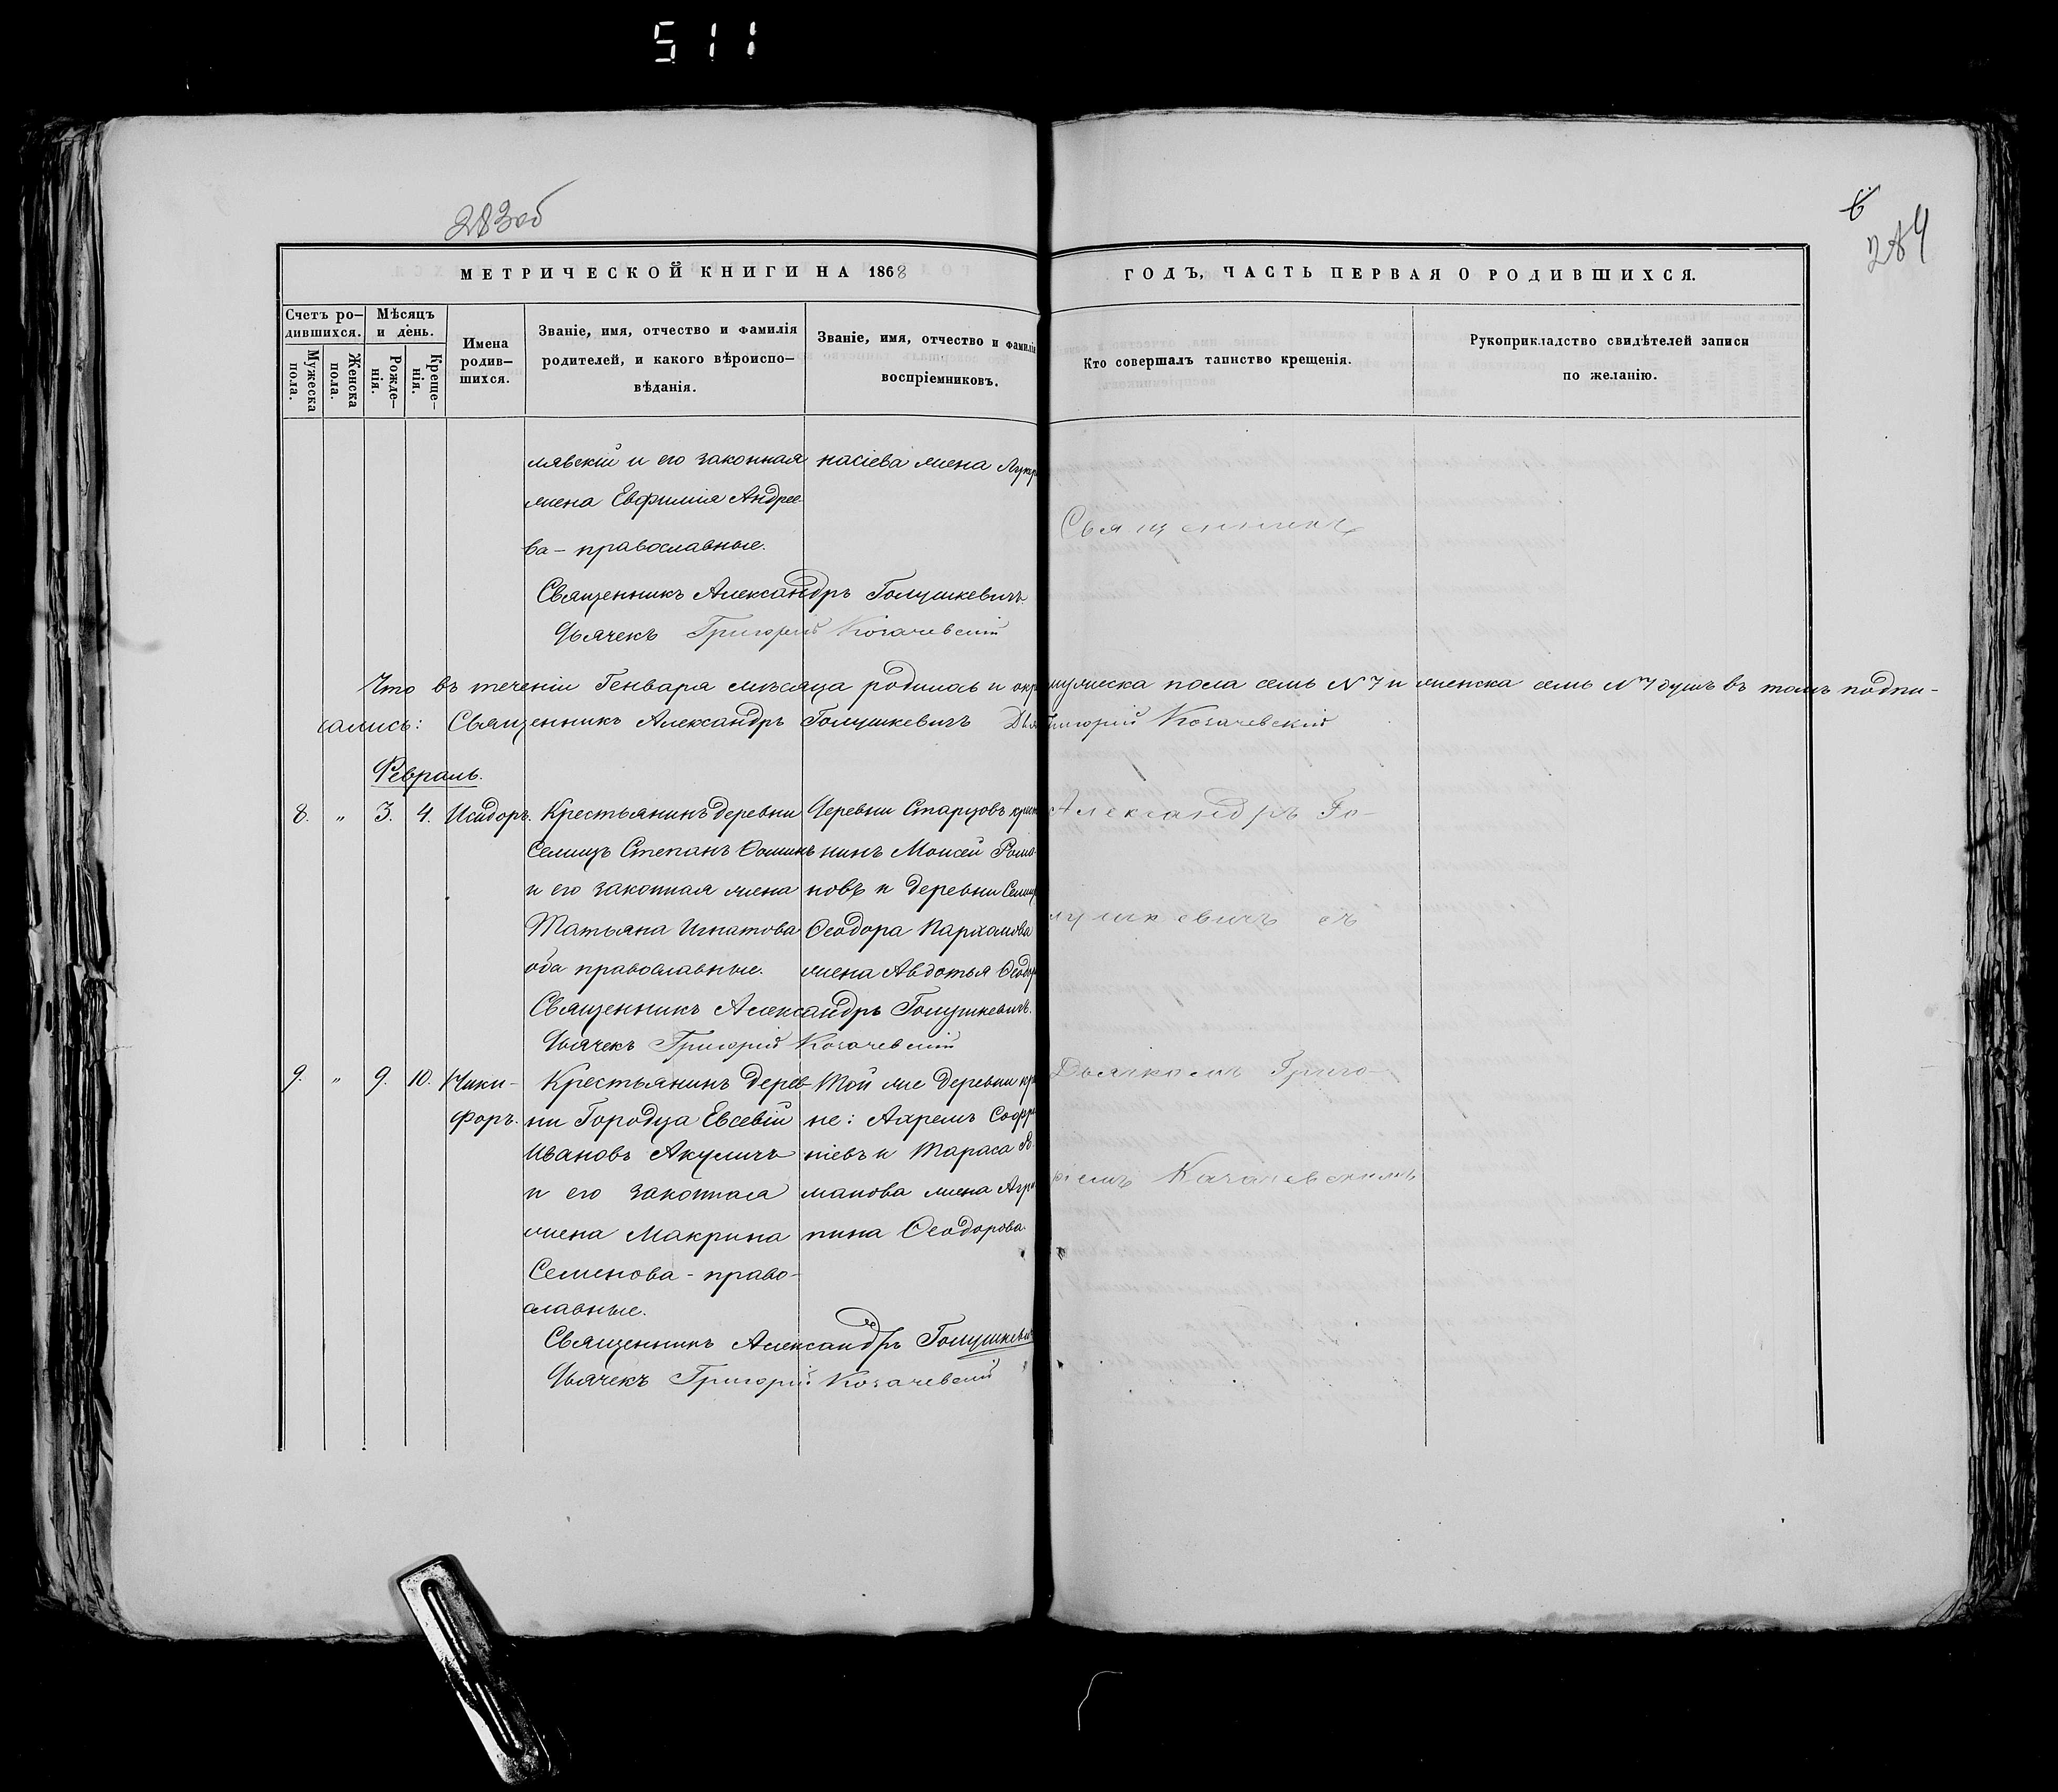 511
283об
6
284
МЕТРИЧЕСКОЙ КНИГИ НА 1868 ГОДЪ, ЧАСТЬ ПЕРВАЯ О РОДИВШИХСЯ.
Счетъ родившихся.
Мужеска пола.
Женска пола.
Мѣсяцъ и день.
Рожде-нія.
Креще-нія.
Имена родив-шихся.
Званіе, имя, отчество и фамилія
родителей, и какого вѣроиспо-
вѣданія.
Званіе, имя, отчество и фамилія
воспріемниковъ.
Кто совершалъ таинство крещенія.
Рукоприкладство свидѣтелей записи
по желанію.
лявскій и его законная
жена Евфимія Андрее-
ва - православные.
насіева жена
Священникъ Александръ Голушкевичъ
Дьячекъ Григорій Козачевскій
Что въ теченіи Генваря мѣсяца родилось и мужеска пола семь N 7 и женска семь N 7 душъ въ томъ подпи-
сались: Священникъ Александръ Голушкевичъ Григорій Козачевскій
Февраль.
8. " 3. 4. Исидоръ.
Крестьянинъ деревни
Семищъ Степанъ Ѳоминъ
и его законная жена
Татьяна Игнатова
оба православные.
Деревни Старцовъ
нинъ Моисей Рома-
новъ и деревни
Ѳеодора Пархомова
жена Авдотья
Священникъ Александръ Голушкевичъ.
Дьячекъ Григорій Козачевскій
9. " 9. 10. Ники-
форъ.
Крестьянинъ дерев-
ни Городца Евсевій
Ивановъ Акуличъ
и его законная
жена Макрина
Семенова - право-
славные.
Той же деревни
не: Ахремъ
ніевъ и Тараса
манова жена
пина Ѳеодорова.
Священникъ Александръ Голушкевичъ
Дьячекъ Григорій Козачевскій
Священникъ
Александръ Го-
лушкевичъ съ
Дьячкомъ Григо-
ріемъ Качачевскимъ